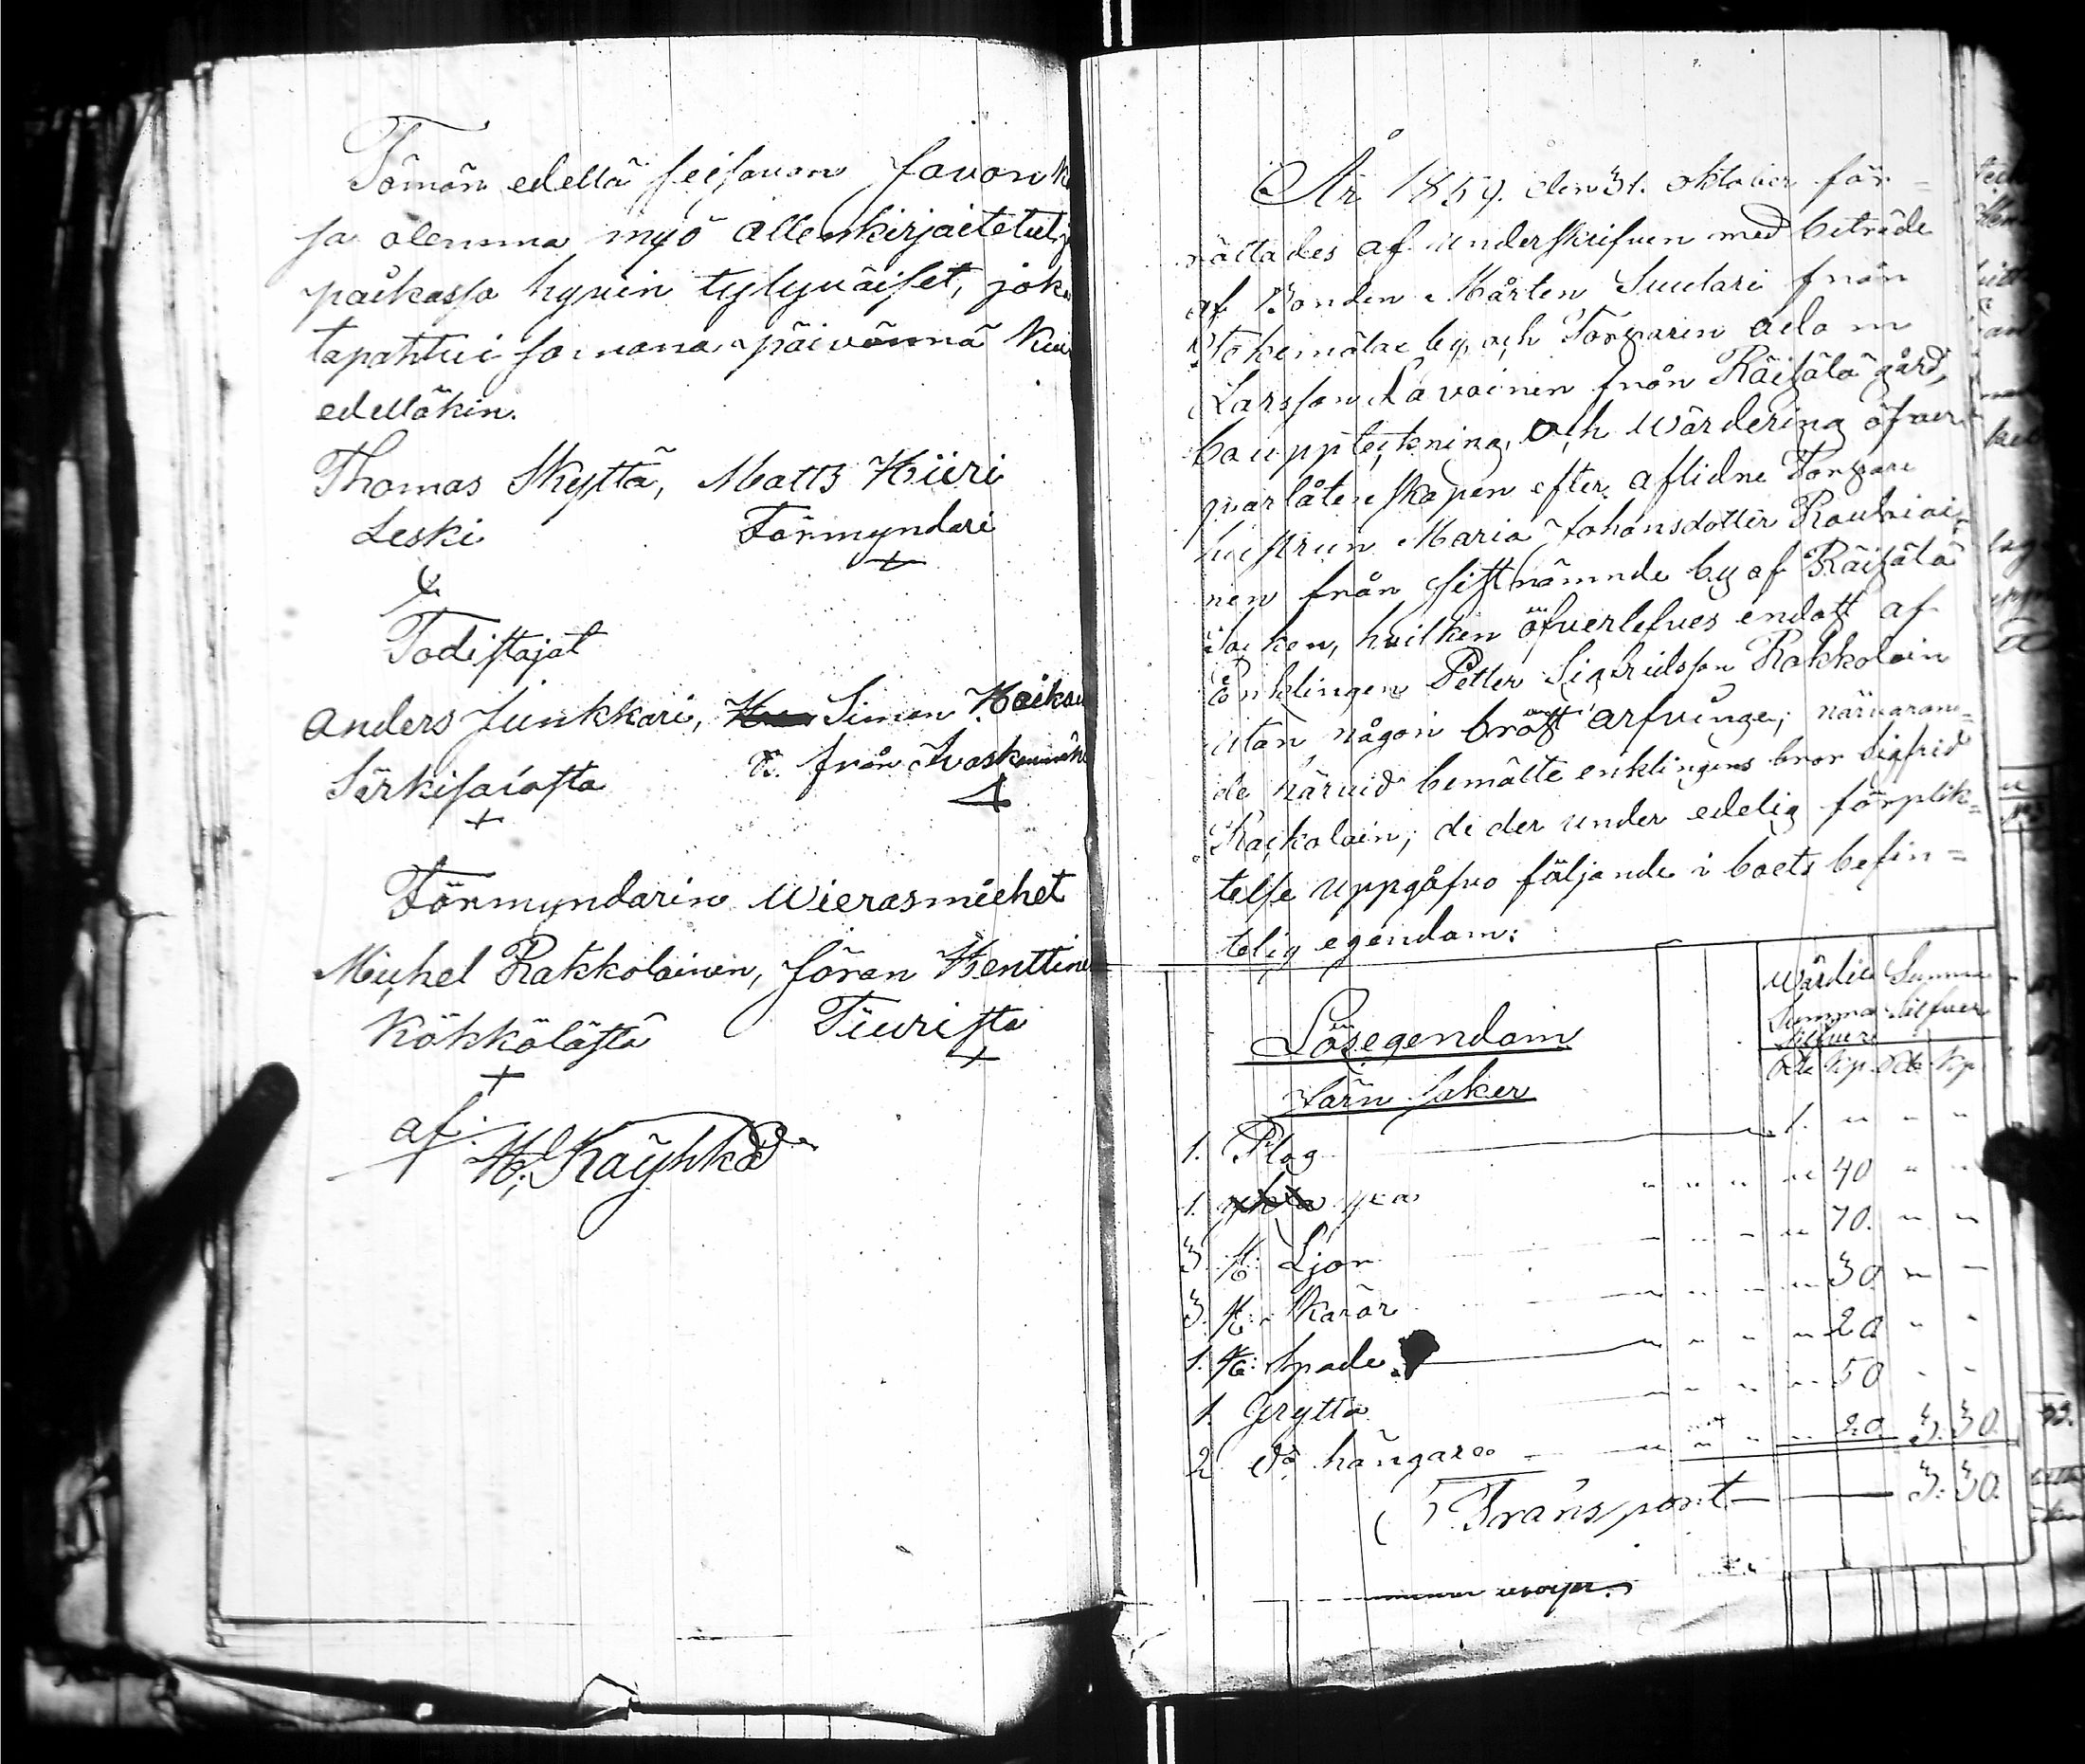 Tömän edellä seisovan javon
ja olemma myö allenkirjaitetut
paikassa hyvin tylyväiset, jok
tapahtui samana päivännä kui
edelläkin.
Thomas Skyttä, Matts Kiiri
Leski Förmyndari
+
Todistajat
Anders Junkkari, Simon Kaika
Särkisaiosta från Ivaskanmäki
+
Förmyndarin wierasmiehet
Michel Rakkolainen, Jöran Henttine
Kökkölästä Tiurista
+ +
af: H. Käyhkö
År 1859. den 31. oktober för=
rättades af underskrifven med beträde
af Bonden Mårten Suutari från
by, och Torparen Adam
Larsson Savainen från Räisälä gård,
bouppteckning och wärdering öfver
qvarlåtenskapen efter aflidne Torpare
hustrun Maria Johansdotter Raukiai=
nen från sistnämnde by af Räisälä
Socken, hvilken öfverlefves endast af
Enklingen Petter Sigfridsson Rakkolain
utan någon bröst arfvinge; närvaran=
de härvid bemälte enklingens bror Sigfrid
Rackolain; de der under edelig förplik=
telse uppgåfvo följande i boets befin=
telig egendom:
Wärdie Summa
Summa Silfver
Silfver
Lösegendom
Rb kp Rb kp
Järn saker
1. Plog 1. " " "
1. yxa " " " " 40 " "
3 st: Ljor " 70. " "
3. st: Skäror " 30 " "
1. st: Spade " " " " 20 " "
1. Grytta " " " " 50 " "
2 do hängare " " " " 20. 3. 30.
Transport 3. 30.